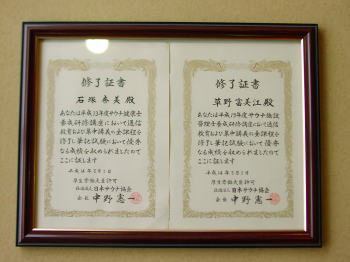 修了証書
石塚春美 殿
あなたは平成13年度サウナ健康士
養成研修講座において通信
教育および集中講義の全課程を
修了し筆記試験において優秀
なる成績を収められましたので
ここに証します
平成14年3月1日
厚生労働大臣許可
社団法人 日本サウナ協会
会長 中野憲一
修了証書
草野富美江 殿
あなたは平成13年度サウナ施設
管理士養成研修講座において通信
教育および集中講義の全課程を
修了し筆記試験において優秀
なる成績を収められましたので
ここに証します
平成14年3月1日
厚生労働大臣許可
社団法人 日本サウナ協会
会長 中野憲一